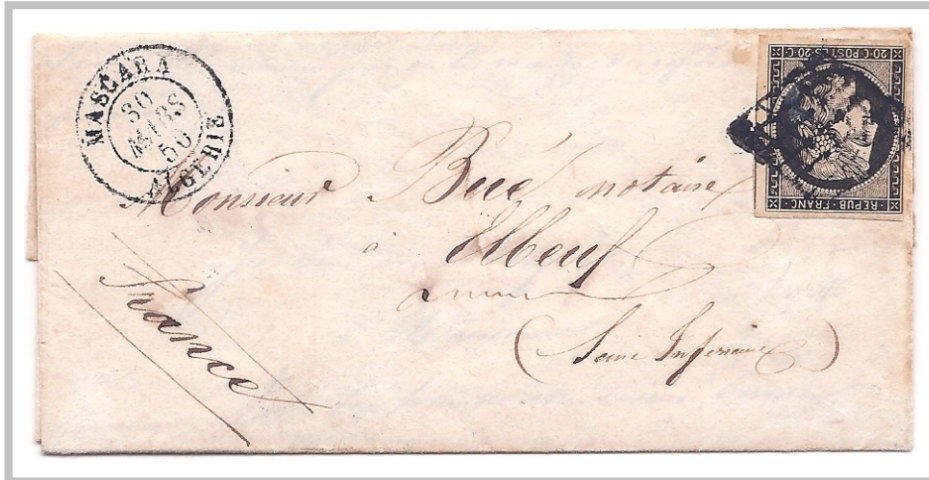 MASCARA
30
MARS
50
ALGERIE
20·C·POSTES·20·C
REPUB·FRANC
Monsieur Bué notaire
à
Elbeuf
(Seine Inferieure)
France